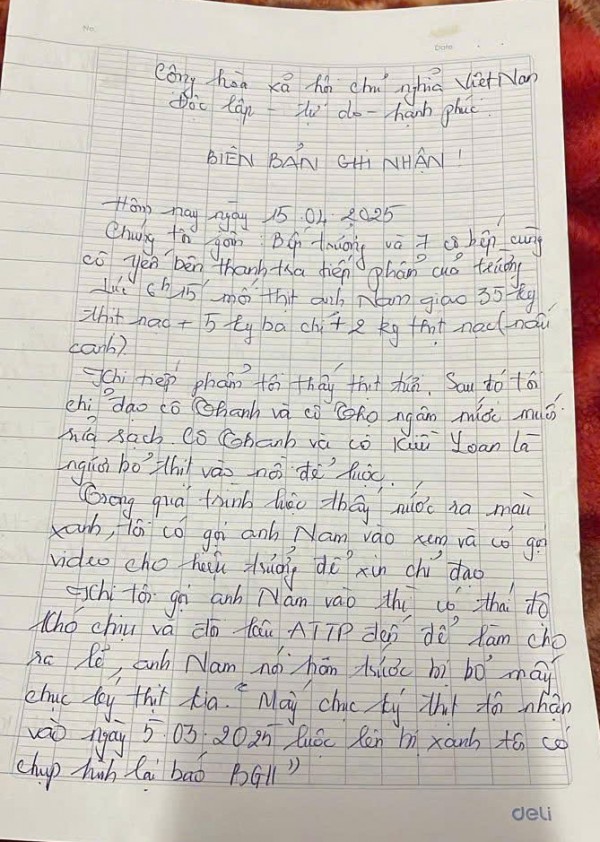 No.
Date
Cộng hòa xã hội chủ nghĩa Việt Nam
Độc lập - tự do - hạnh phúc
BIÊN BẢN GHI NHẬN !
Hôm nay ngày 15.04.2025
Chúng tôi gồm: Bếp trưởng và 7 cô bếp cùng
cô Yến bên thanh tra tiếp phẩm của trường
Lúc 6h15 mối thịt anh Nam giao 35 kg
thịt nạc + 5 ky ba chỉ + 2 kg thịt nạc (nấu
canh).
Khi tiếp phẩm tôi thấy thịt tươi. Sau đó tôi
chỉ đạo cô Thanh và cô Thọ ngâm nước muối
rửa sạch. Cô Thanh và cô Kiều Loan là
người bỏ thịt vào nồi để luộc.
Trong quá trình luộc thấy nước ra màu
xanh, tôi có gọi anh Nam vào xem và có gọi
video cho hiệu trưởng để xin chỉ đạo
Khi tôi gọi anh Nam vào thì có thái độ
khó chịu và đòi kêu ATTP đến để làm cho
ra lẽ, anh Nam nói hôm trước bị bỏ mấy
chục ký thịt kia. " Mấy chục ký thịt tôi nhận
vào ngày 5.03.2025 luộc lên bị xanh tôi có
chụp hình lại báo BGH "
deli